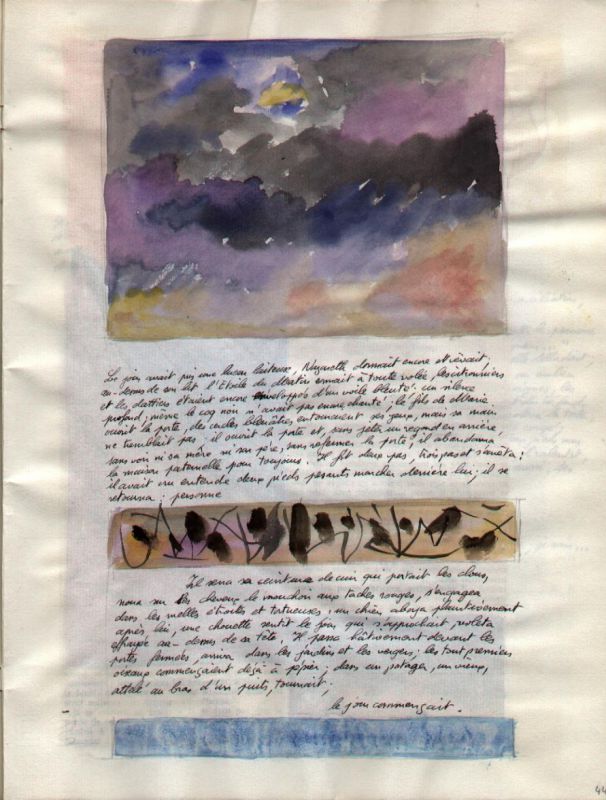 Le jour avait pris une lueur laiteuse, Nazareth dormait encore et rêvait;
au-dessus de son lit l'Étoile du Matin sonnait à toute volée, les citronniers
et les dattiers étaient encore enveloppés d'un voile bleuté. un silence
profond; même le coq noir n'avait pas encore chanté; le fils de Marie
ouvrit la porte, des cercles bleuâtres entouraient ses yeux, mais sa main
ne tremblait pas; il ouvrit la porte et, sans jeter un regard en arrière,
sans voir ni sa mère ni son père, sans refermer la porte il abandonna
la maison paternelle pour toujours. Il fit deux pas, trois pas et s'arrêta;
il avait cru entendre deux pieds pesants marcher derrière lui; il se
retourna; personne
Il serra sa ceinture de cuir qui portait les clous,
noua sur les cheveux le mouchoir aux taches rouges, s'engagea
dans les ruelles étroites et tortueuses. un chien aboya plaintivement
après lui, une chouette sentit le jour qui s'approchait, voleta
effrayée au-dessus de sa tête. Il passa hâtivement devant les
portes fermées, arriva dans les jardins et les vergers; les tout premiers
oiseaux commençaient déjà à pépier; dans un potager, un vieux,
attelé au bras d'un puits, tournait;
le jour commençait.
44